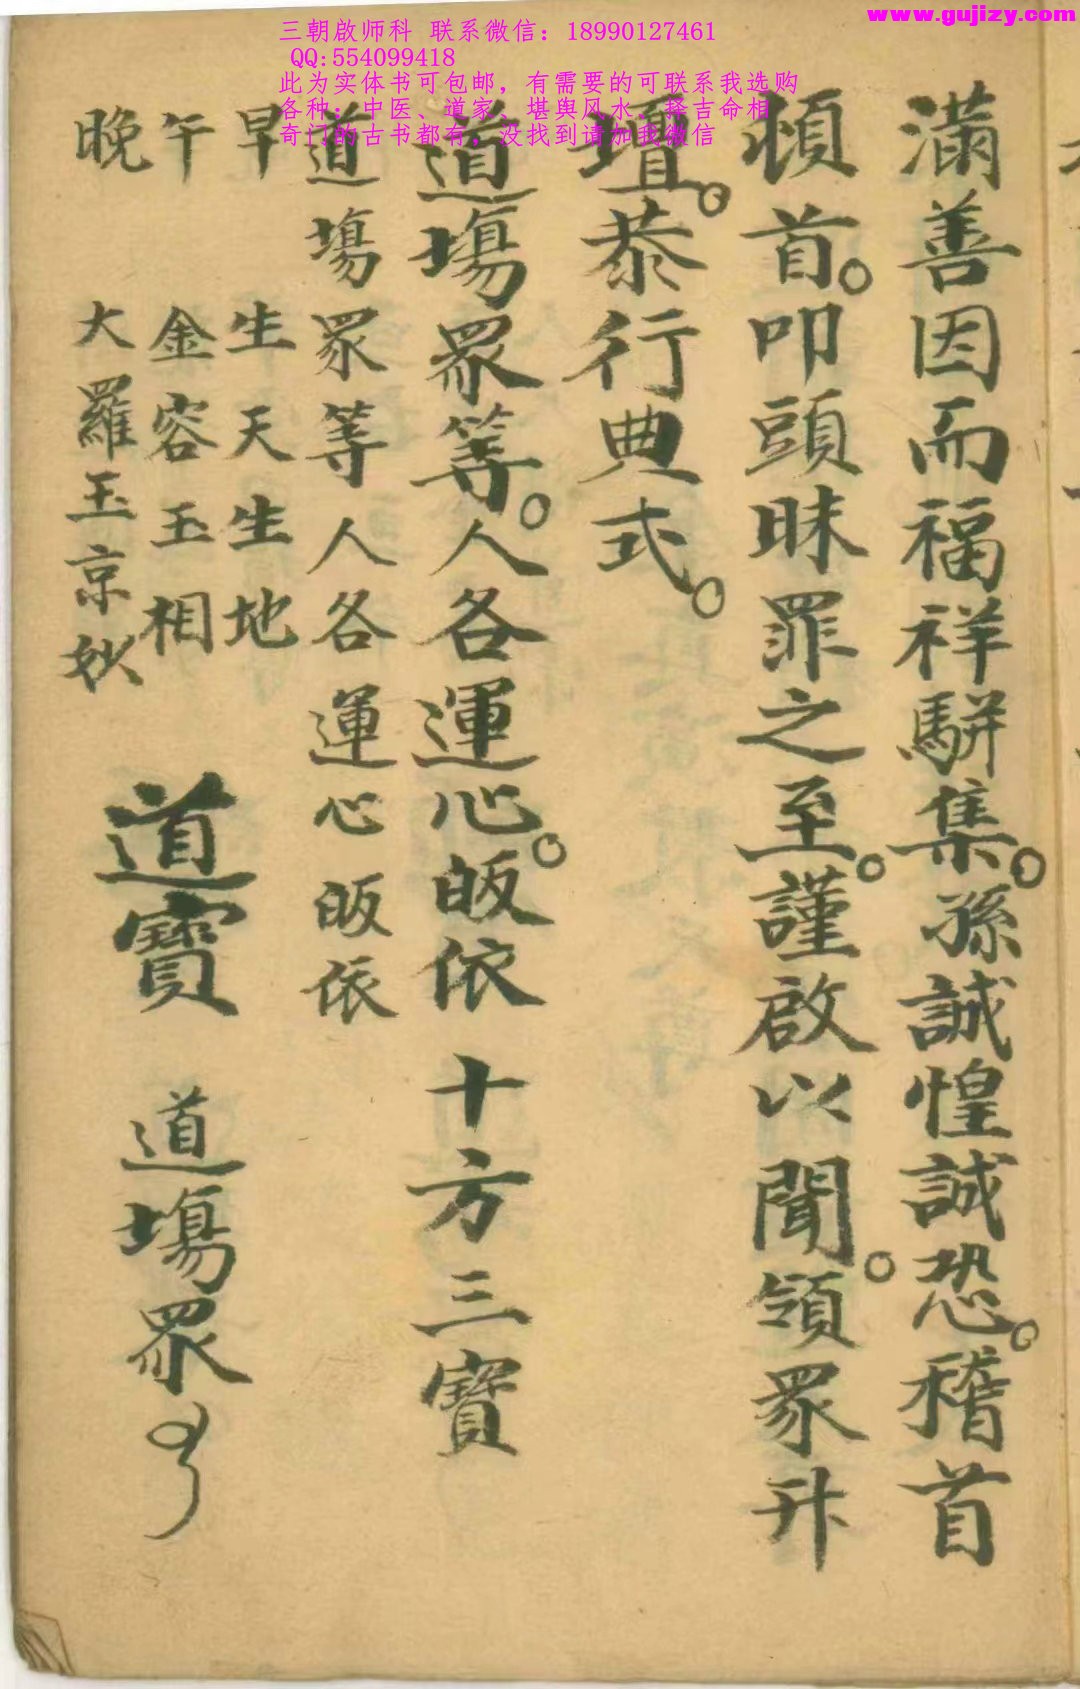 www.gujizy.com
三朝啟师科 联系微信：18990127461
QQ:554099418
此为实体书可包邮，有需要的可联系我选购
各种；中医、道家、堪舆风水、择吉命相
奇门的古书都有，没找到请加我微信
滿善因而福祥駢集。孫誠惶誠恐。稽首
頓首。叩頭昧罪之至。謹啟以聞。領眾升
壇。恭行典式。
道場眾等。人各運心。皈依十方三寶
道場眾等人各運心皈依
早 生天生地
午 金容玉相
晚 大羅玉京妙
道寶 道場眾